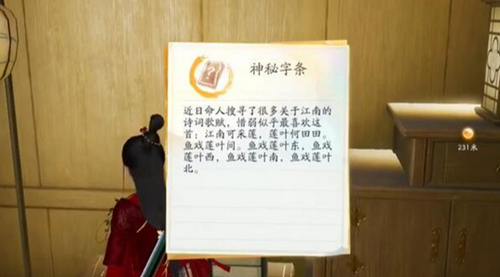 神秘字条
近日命人搜寻了很多关于江南的
诗词歌赋，惜弱似乎最喜欢这
首：江南可采莲，莲叶何田田。
鱼戏莲叶间。鱼戏莲叶东，鱼戏
莲叶西，鱼戏莲叶南，鱼戏莲叶
北。
231米